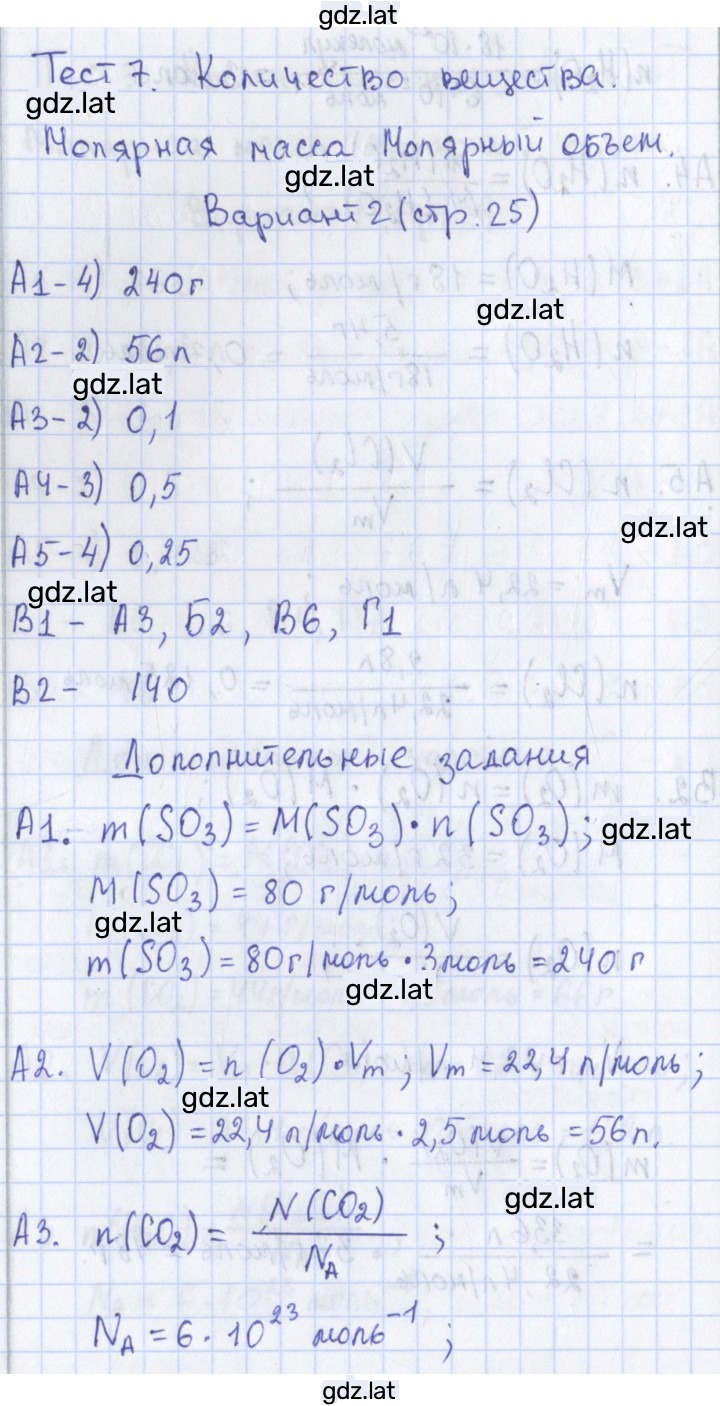 gdz.lat
Тест 7. Количество вещества.
gdz.lat
Молярная масса Молярный объем.
gdz.lat
Вариант 2 (стр. 25)
А1 - 4) 240 г
gdz.lat
А2 - 2) 56 л
gdz.lat
А3 - 2) 0,1
А4 - 3) 0,5
gdz.lat
А5 - 4) 0,25
gdz.lat
В1 - А3, Б2, В6, Г1
В2 - 140
Дополнительные задания
А1. m(SO₃) = M(SO₃) · n(SO₃); gdz.lat
M(SO₃) = 80 г/моль;
gdz.lat
m(SO₃) = 80 г/моль · 3 моль = 240 г
gdz.lat
А2. V(O₂) = n(O₂) · Vm; Vm = 22,4 л/моль;
gdz.lat
V(O₂) = 22,4 л/моль · 2,5 моль = 56 л.
gdz.lat
А3. n(CO₂) = N(CO₂) / N_A ;
N_A = 6 · 10²³ моль⁻¹ ;
gdz.lat